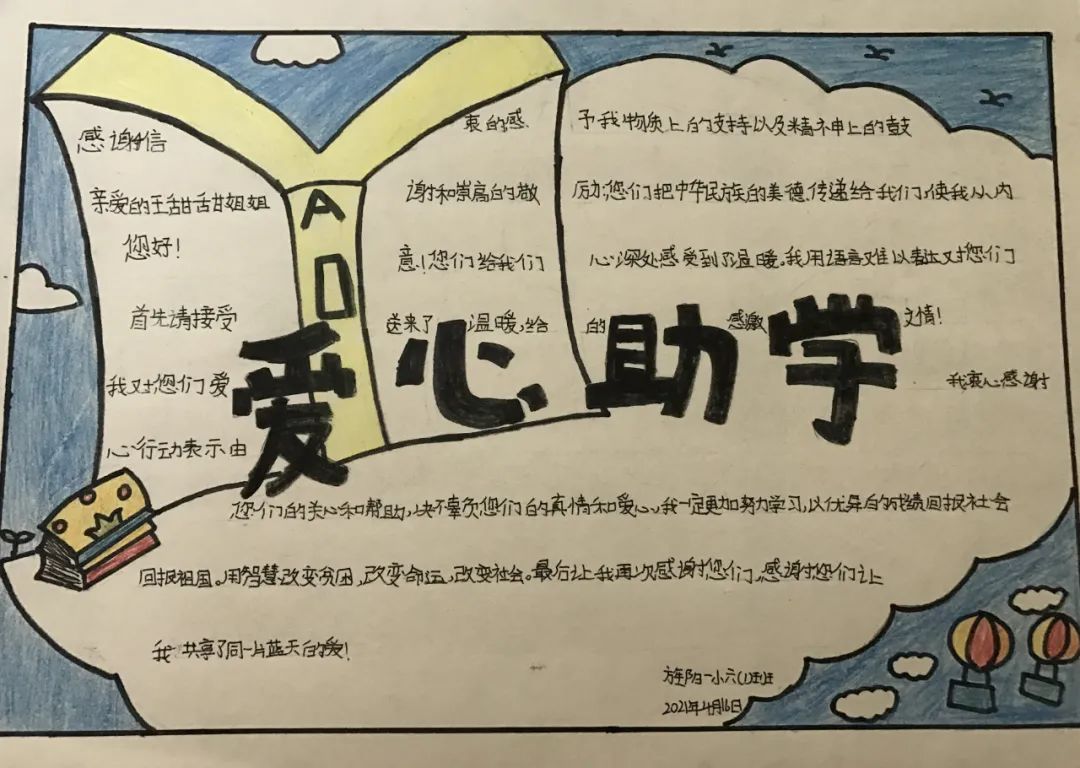 爱心助学
A
D
感谢信
亲爱的王甜甜姐姐
您好!
首先请接受
我对您们爱
心行动表示由
衷的感
谢和崇高的敬
意!您们给我们
送来了温暖,给
予我物质上的支持以及精神上的鼓
励;您们把中华民族的美德传递给我们,使我从内
心深处感受到了温暖。我用语言难以表达对您们
的 感激 之情!
我衷心感谢
您们的关心和帮助,决不辜负您们的真情和爱心,我一定更加努力学习,以优异的成绩回报社会
回报祖国。用智慧改变贫困,改变命运,改变社会。最后让我再次感谢您们,感谢您们让
我共享了同一片蓝天的爱!
旌阳一小六(1)班
2021年4月16日